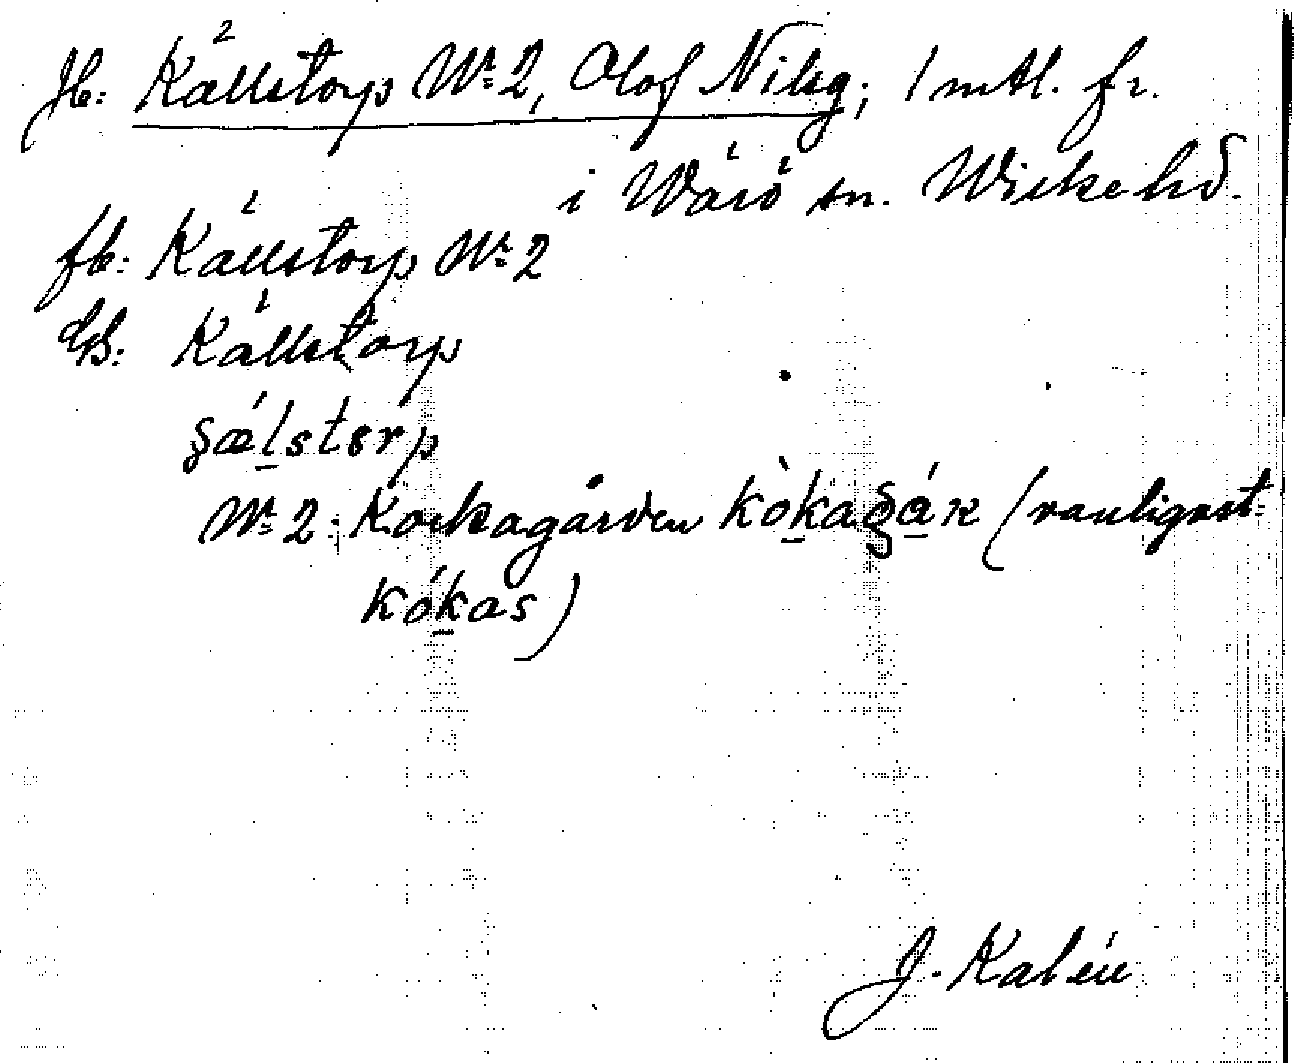 Jb: Källstorp Nr 2, Olof Nilsg; 1 mtl. fr.
i Wärö sn. Wiske hd.
fb: Källstorp Nr 2
Gb: Källstorp
ʂæ̀lstɵrp
Nr 2: Kockagården kòkagáṛ (vanligast:
kókas)
J. Kalén